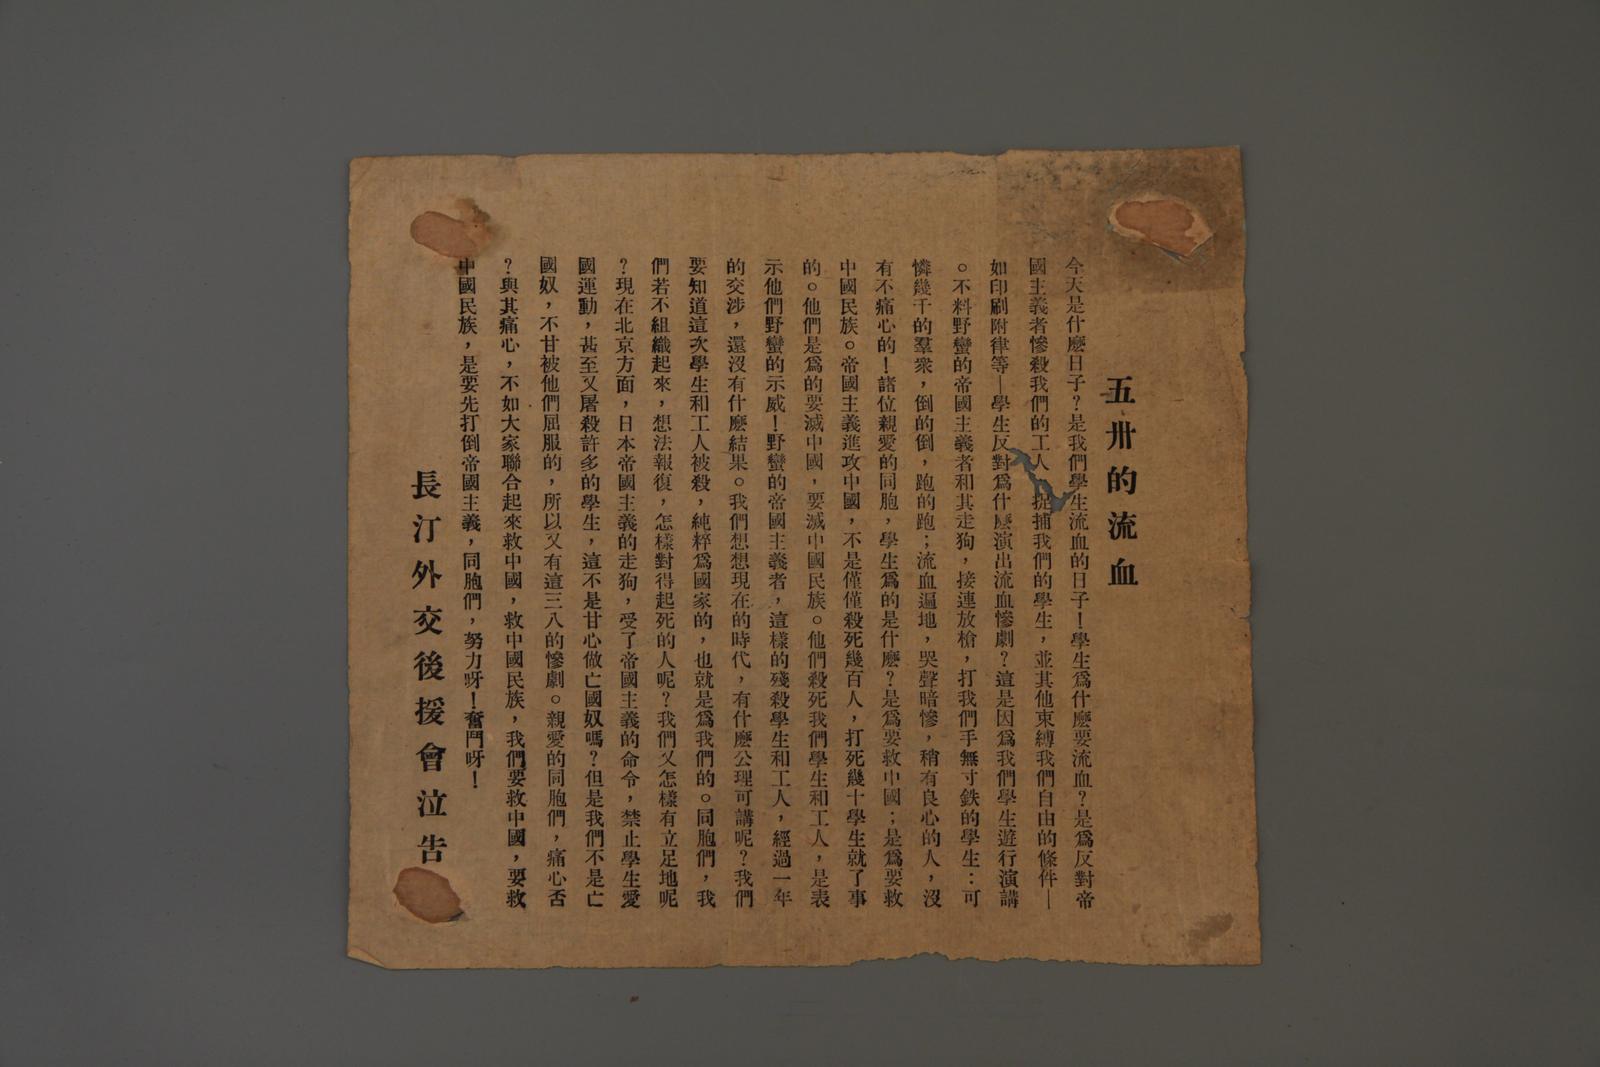 五卅的流血
今天是什麽日子？是我們學生流血的日子！學生爲什麽要流血？是爲反對帝
國主義者慘殺我們的工人，捉捕我們的學生，並其他束縛我們自由的條件—
如印刷附律等—學生反對爲什麽演出流血慘劇？這是因爲我們學生遊行演講
。不料野蠻的帝國主義者和其走狗，接連放槍，打我們手無寸鉄的學生：可
憐幾千的羣衆，倒的倒，跑的跑；流血遍地，哭聲暗慘，稍有良心的人，沒
有不痛心的！諸位親愛的同胞，學生爲的是什麽？是爲要救中國；是爲要救
中國民族。帝國主義進攻中國，不是僅僅殺死幾百人，打死幾十學生就了事
的。他們是爲的要滅中國，要滅中國民族。他們殺死我們學生和工人，是表
示他們野蠻的示威！野蠻的帝國主義者，這樣的殘殺學生和工人，經過一年
的交涉，還沒有什麽結果。我們想想現在的時代，有什麽公理可講呢？我們
要知道這次學生和工人被殺，純粹爲國家的，也就是爲我們的。同胞們，我
們若不組織起來，想法報復，怎樣對得起死的人呢？我們又怎樣有立足地呢
？現在北京方面，日本帝國主義的走狗，受了帝國主義的命令，禁止學生愛
國運動，甚至又屠殺許多的學生，這不是甘心做亡國奴嗎？但是我們不是亡
國奴，不甘被他們屈服的，所以又有這三八的慘劇。親愛的同胞們，痛心否
？與其痛心，不如大家聯合起來救中國，救中國民族，我們要救中國，要救
中國民族，是要先打倒帝國主義，同胞們，努力呀！奮鬥呀！
長汀外交後援會泣告